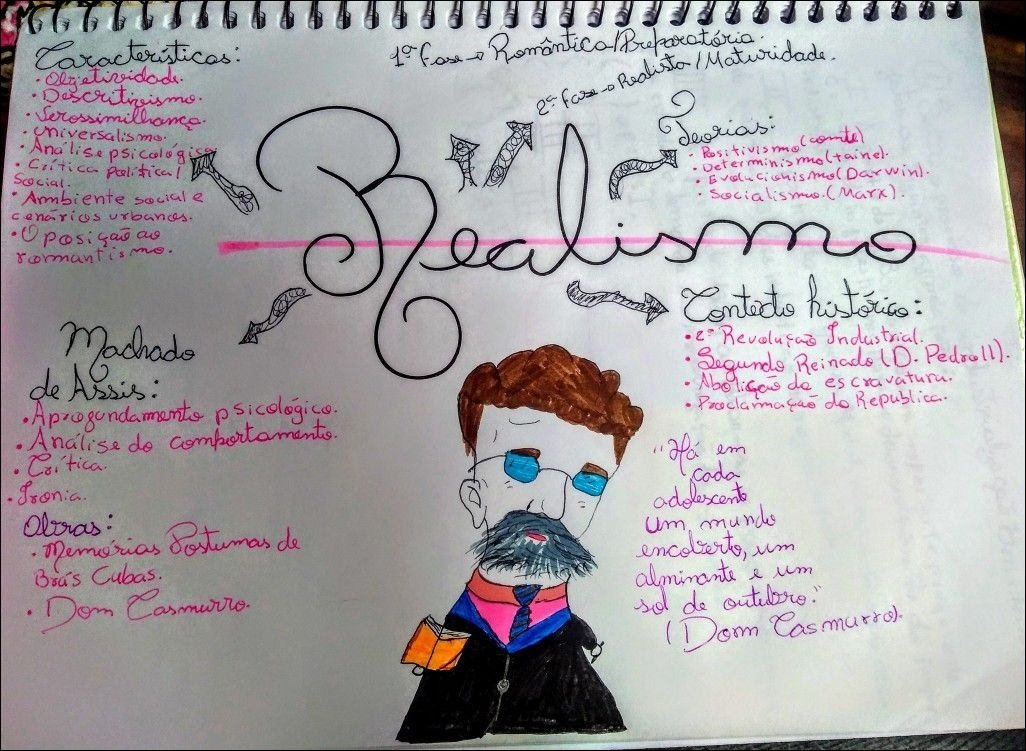 Características:
• Objetividade.
• Descritivismo.
• Verossimilhança.
• Universalismo.
• Análise psicológica
• Crítica política/
Social.
• Ambiente social e
cenários urbanos.
• Oposição ao
romantismo.
1ª Fase → Romântica/Preparatória.
2ª Fase → Realista/Maturidade.
Teorias:
• Positivismo (comte)
• Determinismo (taine).
• Evolucionismo (Darwin).
• Socialismo. (Marx).
Realismo
Contexto histórico:
• 2ª Revolução Industrial.
• Segundo Reinado (D. Pedro II).
• Abolição da escravatura.
• Proclamação da República.
Machado
de Assis:
• Aprofundamento psicológico.
• Análise do comportamento.
• Crítica.
• Ironia.
Obras:
• Memórias Postumas de
Brás Cubas.
• Dom Casmurro.
"Há em
cada
adolescente
um mundo
encoberto, um
alminante e um
sol de outubro."
(Dom Casmurro).